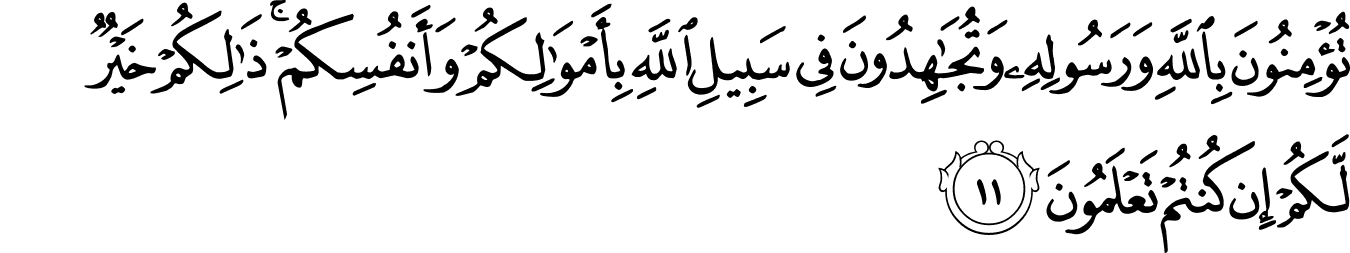 تُؤۡمِنُونَ بِٱللَّهِ وَرَسُولِهِۦ وَتُجَٰهِدُونَ فِي سَبِيلِ ٱللَّهِ بِأَمۡوَٰلِكُمۡ وَأَنفُسِكُمۡۚ ذَٰلِكُمۡ خَيۡرٞ
لَّكُمۡ إِن كُنتُمۡ تَعۡلَمُونَ ١١